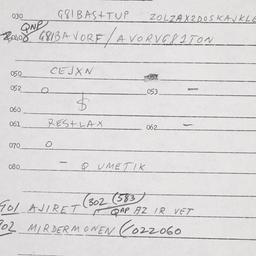 030 G81BAS+TUP ZOLZAX2DOSKAJKLE
QNP
G81BAVORF/AVORVG81TON
050 CEJXN
052 O 053 -
060 $
061 RES+LAX 062 -
070 O
080 - Q UMETIK
901 AJIRET (302 (583)
QAP AZ IR VET
902 MIRDERMONEN (/022060